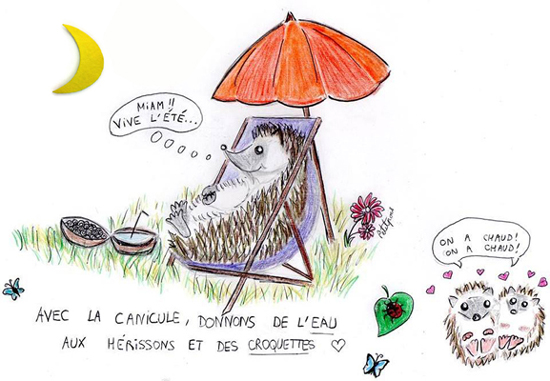 MIAM !!
VIVE L'ÉTÉ...
ON A CHAUD !
ON A CHAUD !
AVEC LA CANICULE, DONNONS DE L'EAU
AUX HÉRISSONS ET DES CROQUETTES ♡